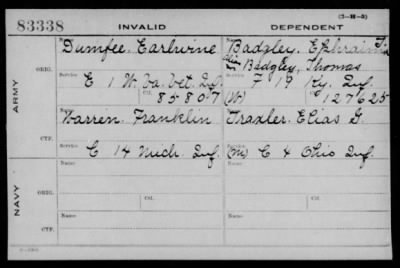 (3-H-3)
83338 INVALID DEPENDENT
Name Name
Dumfee. Earlwine Badgley, Ephraim Fr
alias Badgley, Thomas
ORIG. Service Service
E 1 W. Va. Vet. Inf. F 19 Ky. Inf.
Ctf. 85807 (W) 127625
ARMY
Name Name
Warren. Franklin Traxler. Elias G.
CTF. Service Service
C 14 Mich. Inf. (Mo) C 4 Ohio Inf.
Name Name
NAVY
ORIG. Service Ctf. Service Ctf.
Name Name
CTF. Service Service